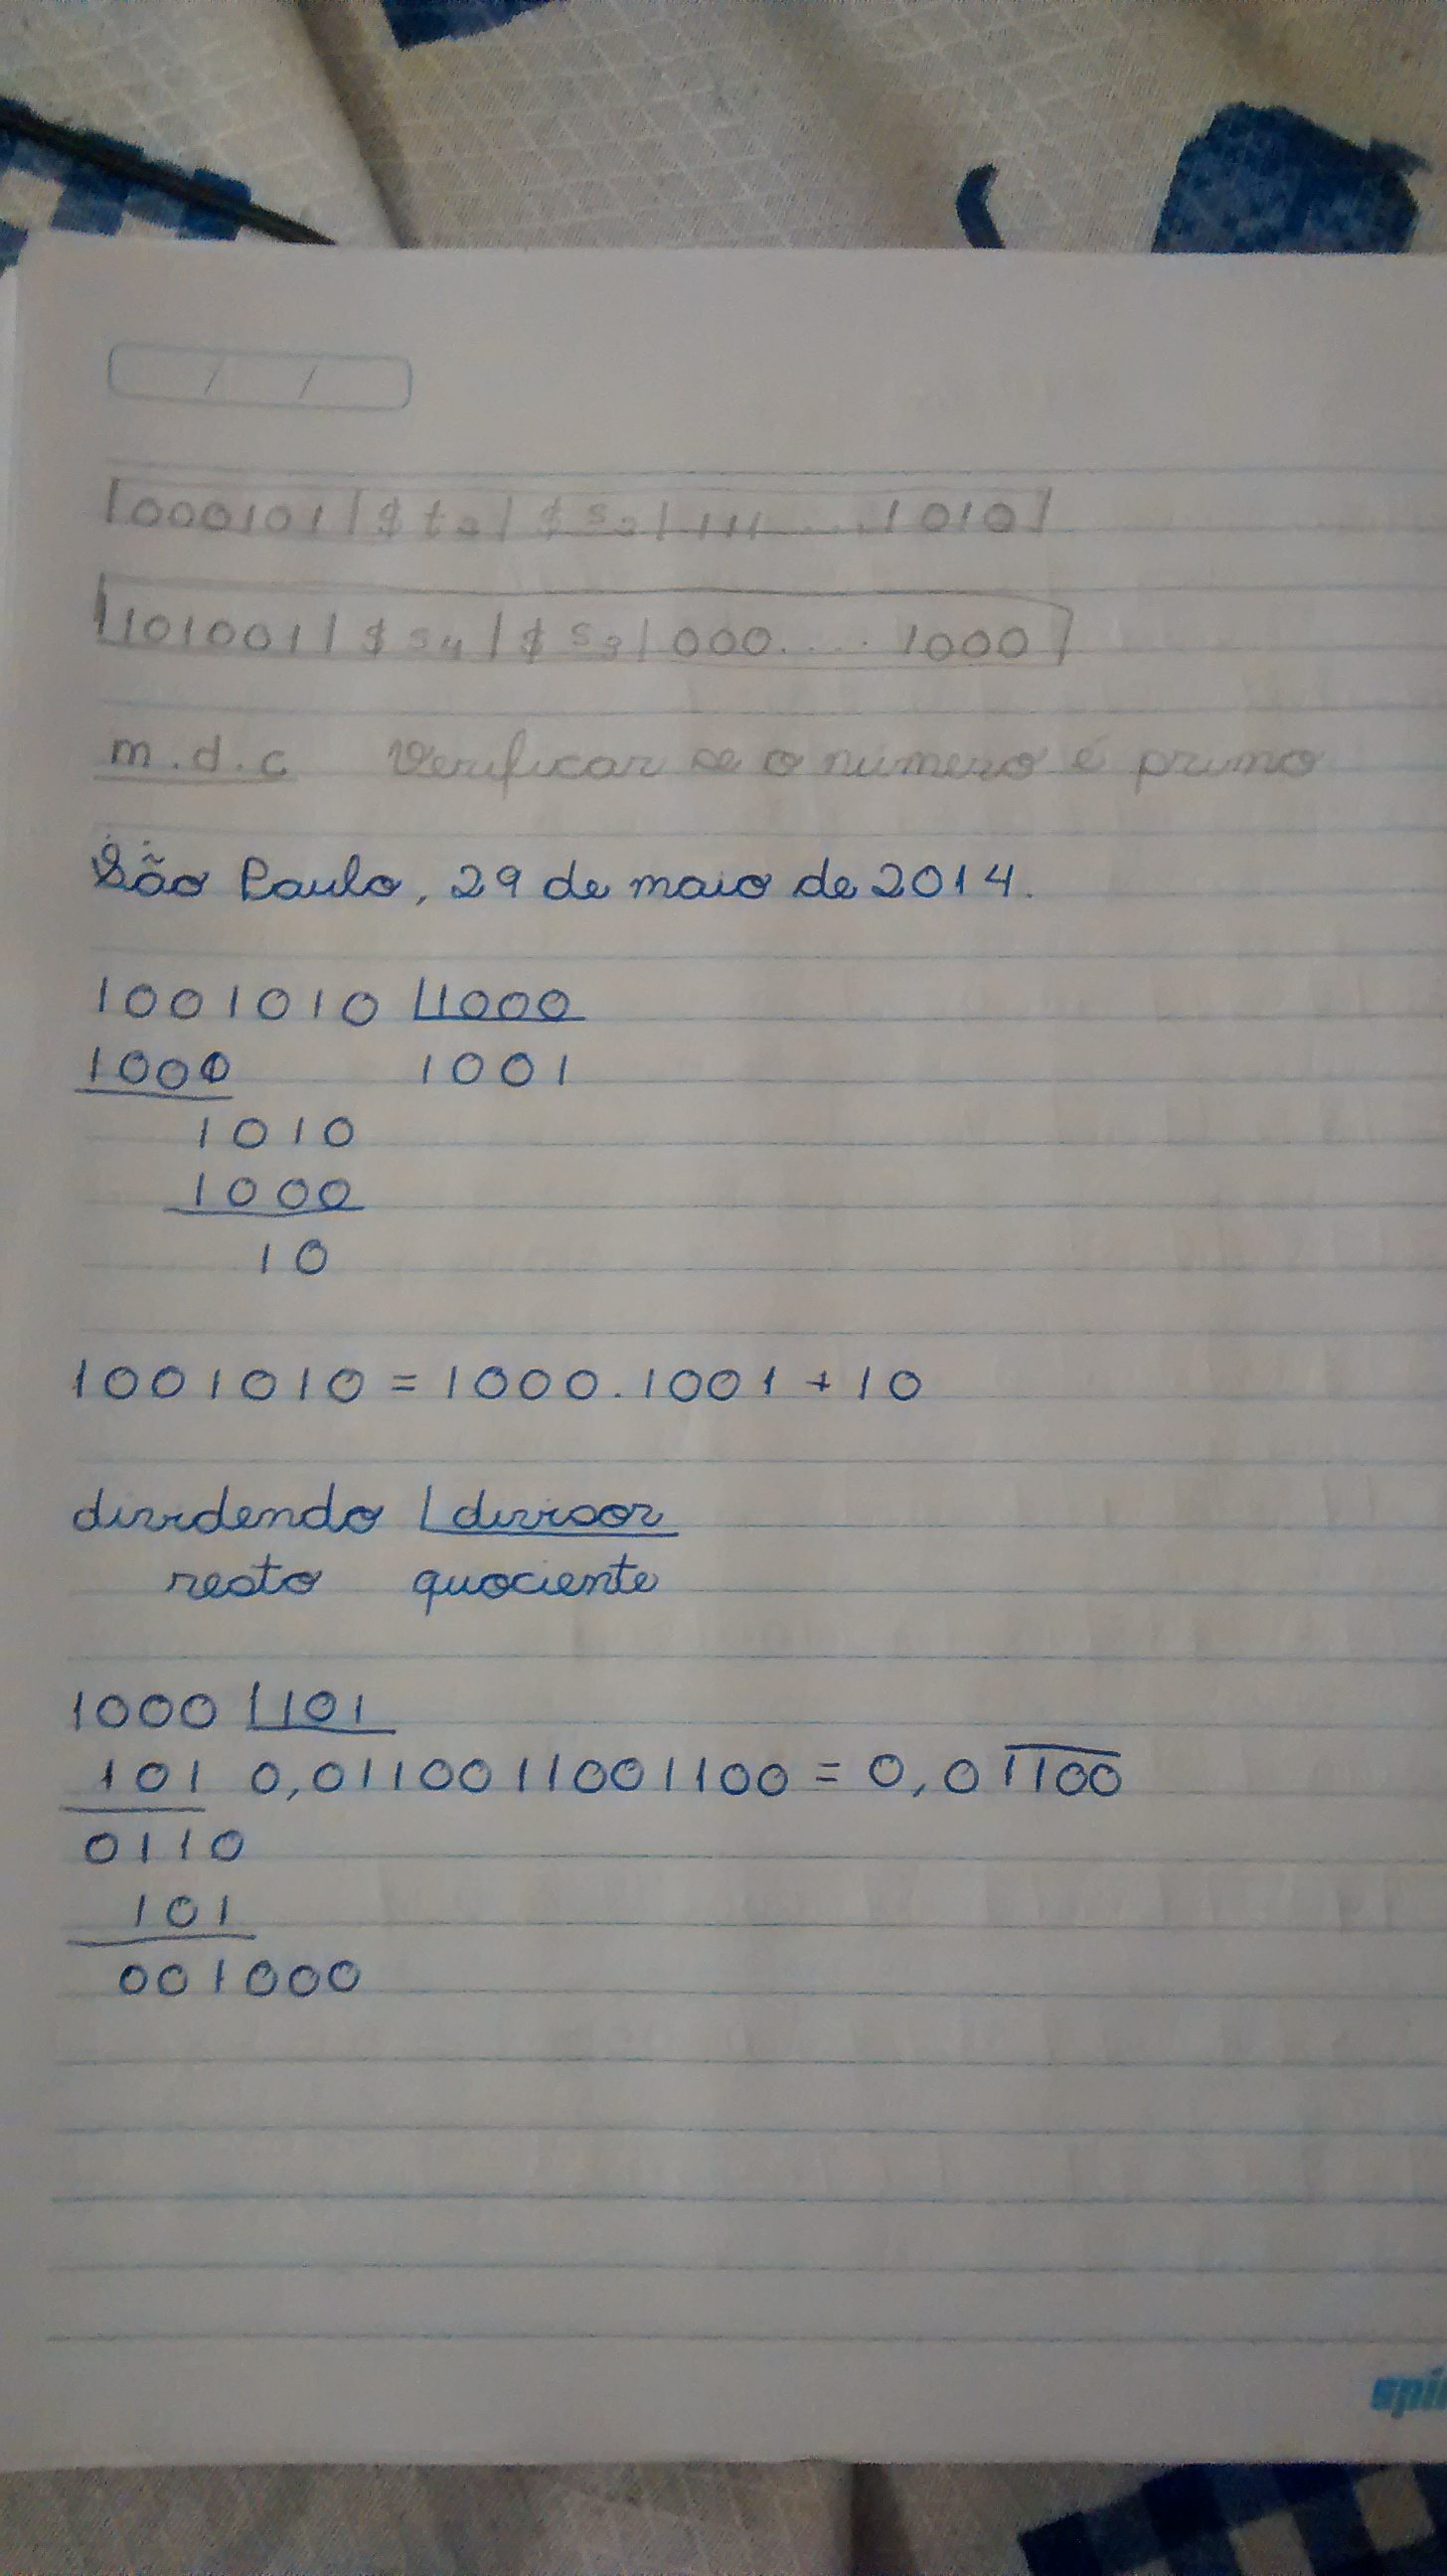 / /
|000101|$t0|$s0|111.....1010|
|101001|$s4|$s3|000..... 1000|
m.d.c Verificar se o número é primo
São Paulo, 29 de maio de 2014.
1001010 |1000
1000 1001
1010
1000
10
1001010 = 1000.1001 + 10
dividendo |divisor
resto quociente
1000 |101
101 0,0110011001100 = 0,01100
0110
101
001000